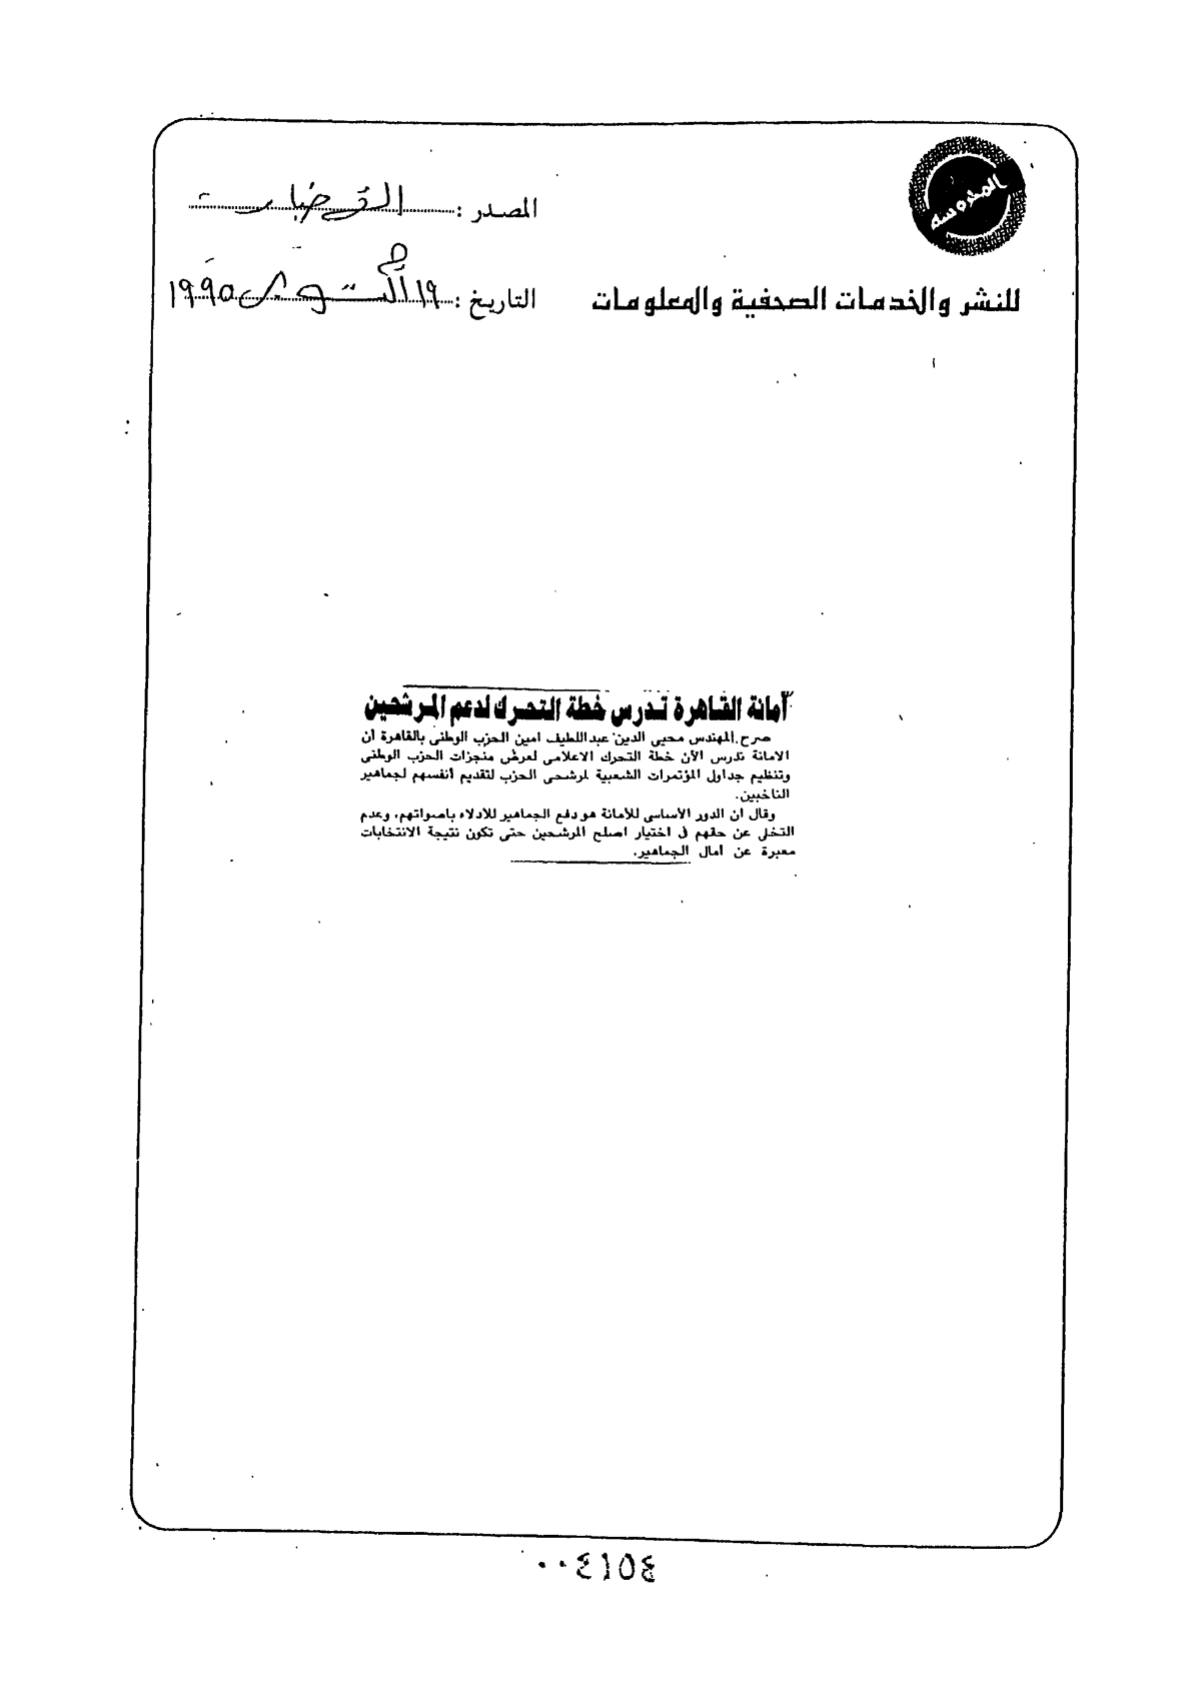 المحروسة
المصدر : الأخبار
للنشر والخدمات الصحفية والمعلومات
التاريخ : ١٩ أكتوبر ١٩٩٥
أمانة القاهرة تدرس خطة التحرك لدعم المرشحين
صرح المهندس محيى الدين عبداللطيف امين الحزب الوطنى بالقاهرة أن
الامانة تدرس الآن خطة التحرك الاعلامى لعرض منجزات الحزب الوطنى
وتنظيم جداول المؤتمرات الشعبية لمرشحى الحزب لتقديم أنفسهم لجماهير
الناخبين.
وقال ان الدور الأساسى للأمانة هو دفع الجماهير للأدلاء باصواتهم، وعدم
التخلى عن حقهم فى اختيار اصلح المرشحين حتى تكون نتيجة الانتخابات
معبرة عن امال الجماهير.
٠٠٤١٥٤